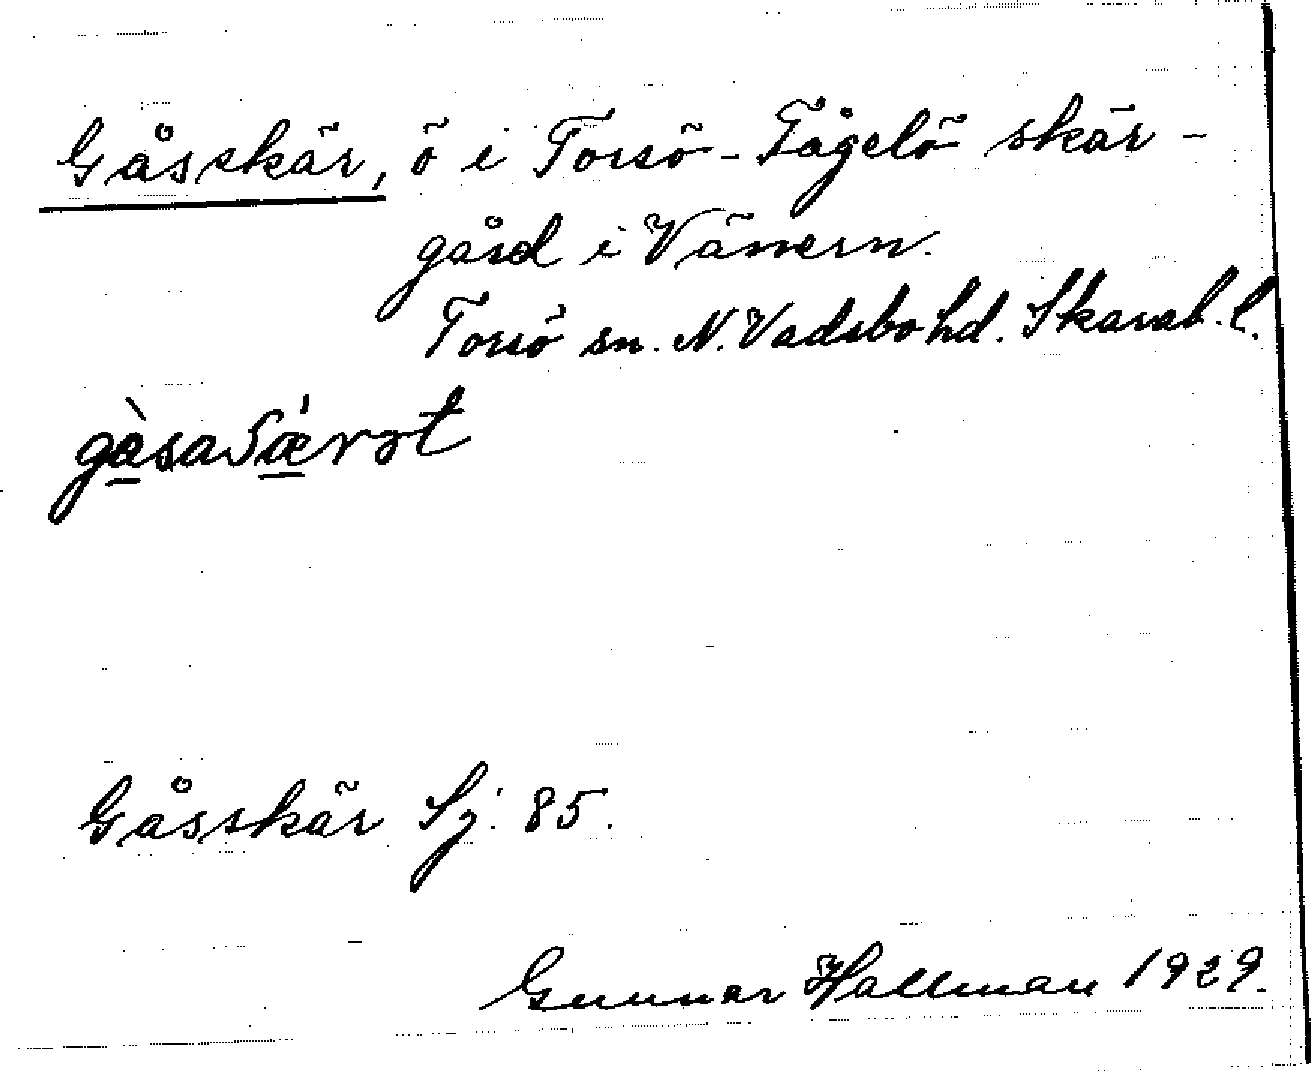 Gåsskär, ö i Torsö-Fågelö skär-
gård i Vänern.
Torsö sn. N. Vadsbo hd. Skarab. l.
gàsaʃǽrət
Gåsskär Sj. 85.
Gunnar Hallman 1929.